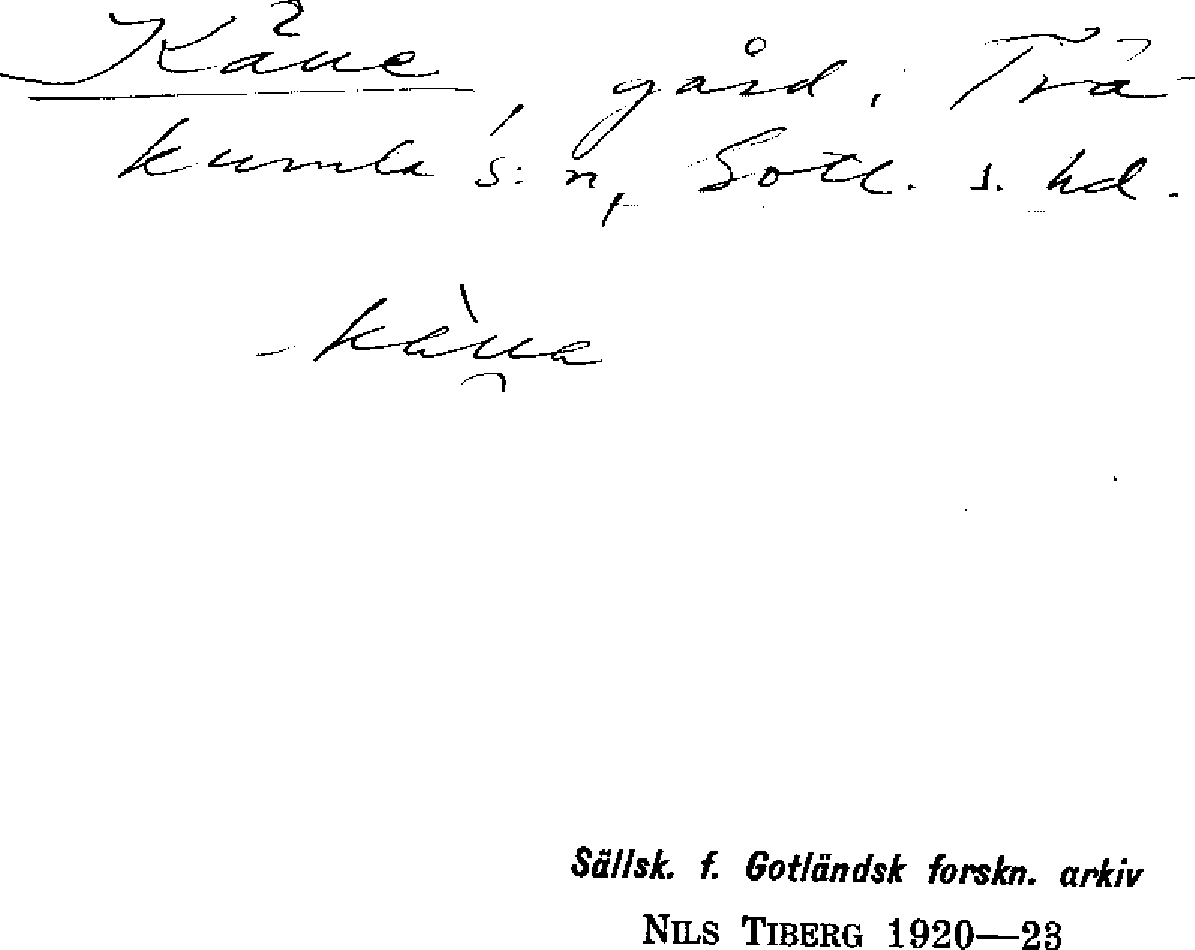 Kåue, gård, Trä-
kumla s:n, Gotl. s. hd.
kàua
Sällsk. f. Gotländsk forskn. arkiv
NILS TIBERG 1920—23